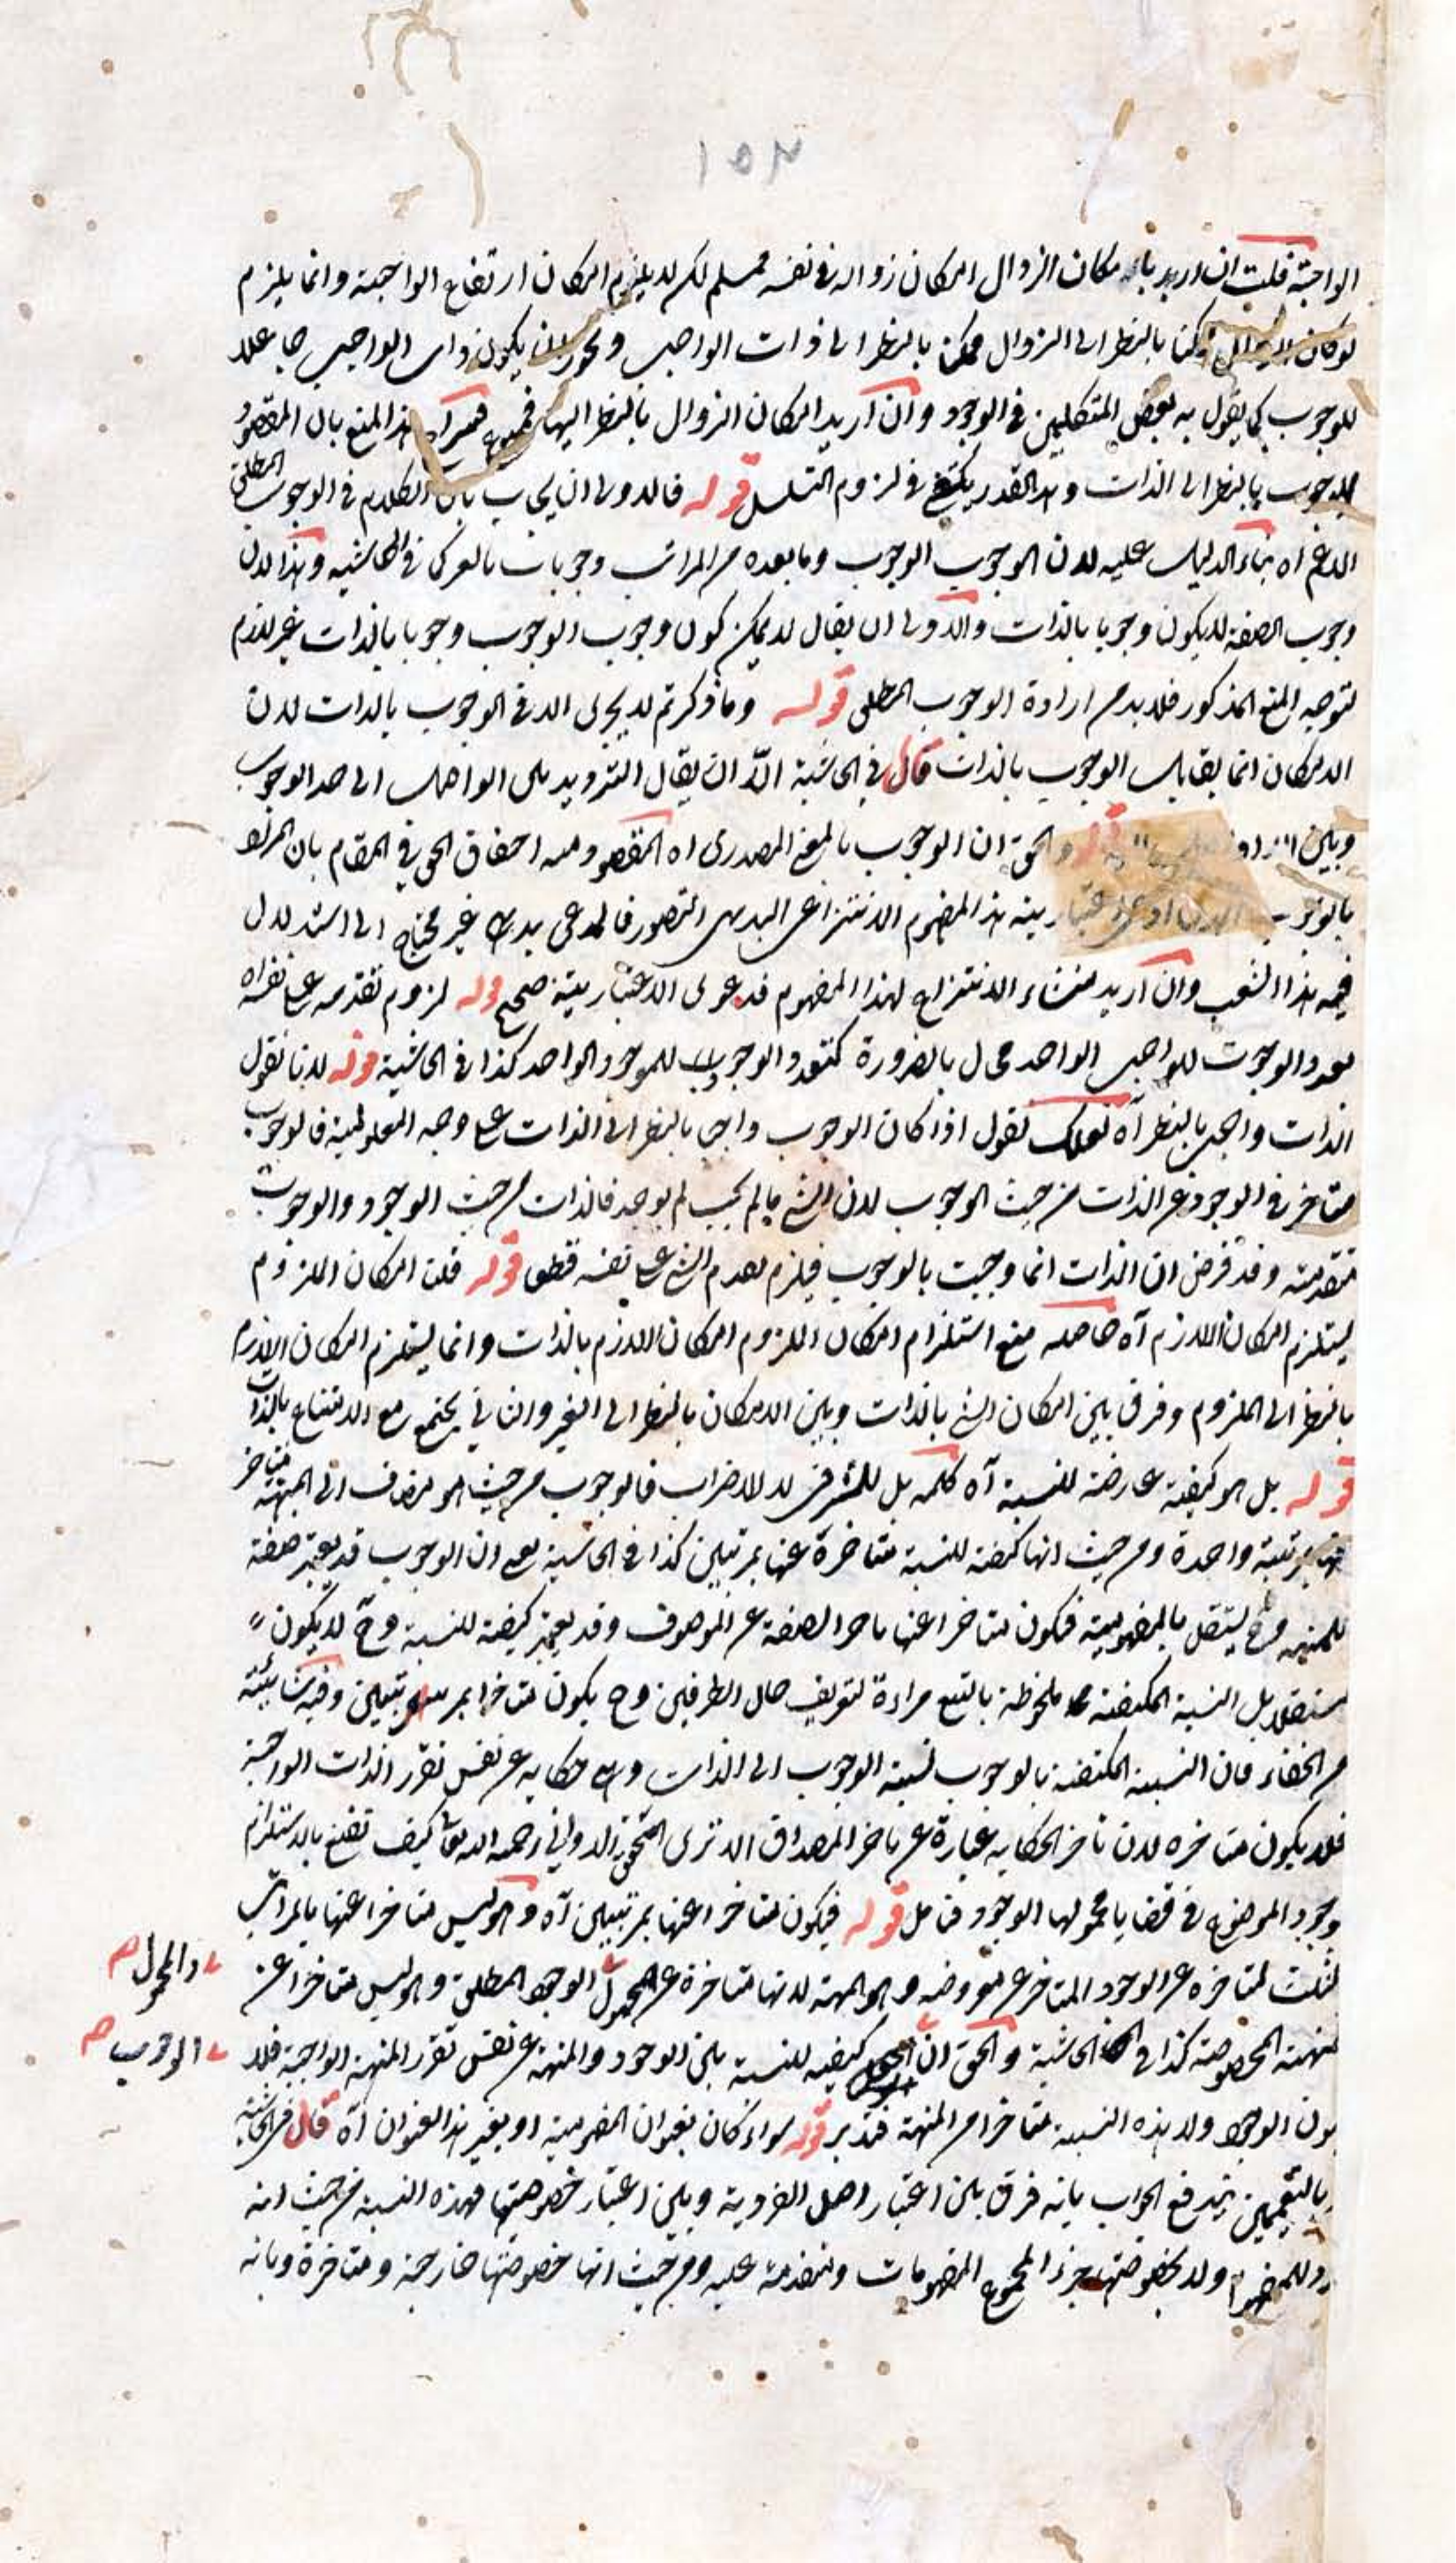 ١٥٢
الواجبة قلت ان اريد بامكان الزوال امكان زواله في نفسه فمسلم لكن لا يلزم امكان ارتفاع الواجبية وانما يلزم
لو كان ممكنا بالنظر الى الزوال ممكن بالنظر الى ذات الواجب ويجوز ان يكون ذات الواجب جاعلا
للوجوب كما يقول به بعض المتكلمين في الوجود وان اريد امكان الزوال بالنظر اليها فممنوع هذا المنع بان المقصود
بالنظر الى الذات وهذا القدر يكفي في لزوم التسلسل قوله فالاولى ان يجاب بان الكلام في الوجوب المطلق
الاعم اه بناء الدليل عليه لان الوجوب الوجوب وما بعده من المراتب وجوبات بالغير كذا في الحاشية وهذا لان
وجوب الصفة لا يكون وجوبا بالذات والاولى ان يقال لا يمكن كون وجوب الوجوب وجوبا بالذات غير لازم
لتوجه المنع المذكور فلا بد من ارادة الوجوب المطلق قوله وما ذكرتم لا يجرى الا في الوجوب بالذات لان
الامكان انما يقابل الوجوب بالذات قال في الحاشية الا ان يقال الترديد بين الواصل الى حد الوجوب
وبين والحق ان الوجوب بالمعنى المصدري اه المقصود منه احقاق الحق في المقام بان المراد
بالوجوب هذا المفهوم الانتزاعي البديهي التصور فالمدعى بديهي غير محتاج الى استدلال
فيه هذا الشغب وان اريد منشاء الانتزاع لهذا المفهوم فدعوى الاعتبارية صحيح قوله لزوم تقدمه على نفسه اه
تعدد الوجوب للواجب الواحد محال بالضرورة كتعدد الوجود للموجود الواحد كذا في الحاشية قوله لانا نقول
الذات واجب بالنظر آه لعلك تقول اذا كان الوجوب واجبا بالنظر الى الذات على وجه المعلولية فالوجوب
متاخر في الوجود عن الذات من حيث الوجوب لان الشئ ما لم يجب لم يوجد فالذات من حيث الوجود والوجوب
متقدمة وقد فرض ان الذات انما وجبت بالوجوب فيلزم تقدم الشئ على نفسه قطعا قوله قلت امكان الملزوم
يستلزم امكان اللازم آه حاصله منع استلزام امكان الملزوم امكان اللازم بالذات وانما يستلزم امكان اللازم
بالنظر الى الملزوم وفرق بين امكان الشئ بالذات وبين الامكان بالنظر الى الغير والثاني يجتمع مع الامتناع بالذات
قوله بل هو كيفية عارضة للنسبة آه كلمة بل للترقي لا للاضراب فالوجوب من حيث هو مضاف الى المهية متاخر
عنها بمرتبة واحدة ومن حيث انها كيفية للنسبة متاخرة عنها بمرتبتين كذا في الحاشية يعني ان الوجوب قد يعتبر صفة
للمهية وح يستقل بالمفهومية فيكون متاخرا عنها تاخر الصفة عن الموصوف وقد يعتبر كيفية للنسبة وح لا يكون
مستقلا بل النسبة المكيفة ملحوظة بالتبع مراءة لتعريف حال الطرفين وح يكون متاخرا بمرتبتين وفيه شائبة
من الخفاء فان النسبة المكيفة بالوجوب نسبة الوجوب الى الذات وهي حكاية عن نفس تقرر الذات الواجبة
فلا يكون متاخرة لان تاخر الحكاية عبارة عن تاخر المصداق الا ترى المحقق الدواني رحمه الله تعالى كيف تقنع بالاستلزام
وجود الموضوع في قضايا محمولها الوجود فتامل قوله فيكون متاخرا عنها بمرتبتين آه وليس متاخرا عنها بالمراتب
الثلث لتاخره عن الوجود المتاخر عن معروضه وهو المهية لانها متاخرة عن المحمول الوجود المطلق وليس متاخرا عن
المهية المخصوصة كذا في الحاشية والحق ان كيفية للنسبة بين الوجود والمهية عن نفس تقرر المهية الواجبة فلا
يكون الوجود ولا هذه النسبة متاخرا من المهية فتدبر قوله سواء كان بعنوان المفهومية او بغير هذا العنوان آه قال في الحاشية
بالتعميمين يندفع الجواب بانه فرق بين اعتبار اصل الفردية وبين اعتبار خصوصيتها فهذه النسبة من حيث انه
فرد للمفهوم ولا بخصوصيتها جزء المجموع المفهومات ومتقدمة عليه ومن حيث انها خصوصيتها خارجة ومتاخرة وبانه
والمحمول صح
الوجوب صح